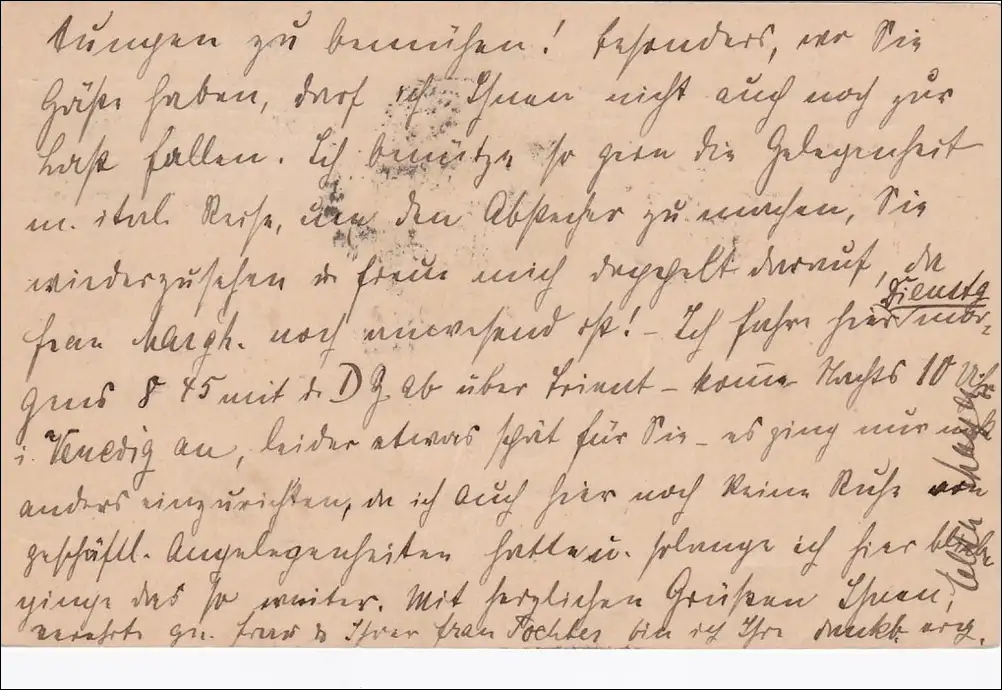 tungen zu bemühen! besonders, wo Sie
Gäste haben, darf ich Ihnen nicht auch noch zur
Last fallen. Ich benütze so gern die Gelegenheit
m. ital. Reise, um den Abstecher zu machen, Sie
wiederzusehen u freue mich doppelt darauf, da
Frau Margh. noch anwesend ist! – Ich fahre hier Dienstg mor-
gens 8 45 mit d. D Z ab über Trient – komme Nachts 10 Uhr
i. Venedig an, leider etwas spät für Sie – es ging nur nicht
anders einzurichten, da ich auch hier noch keine Ruhe von
geschäftl. Angelegenheiten hatte u. solange ich hier bliebe
ginge das so weiter. Mit herzlichen Grüßen Ihnen,
verehrte gn. Frau u Ihrer Frau Tochter bin ich Ihre dankb. erg.